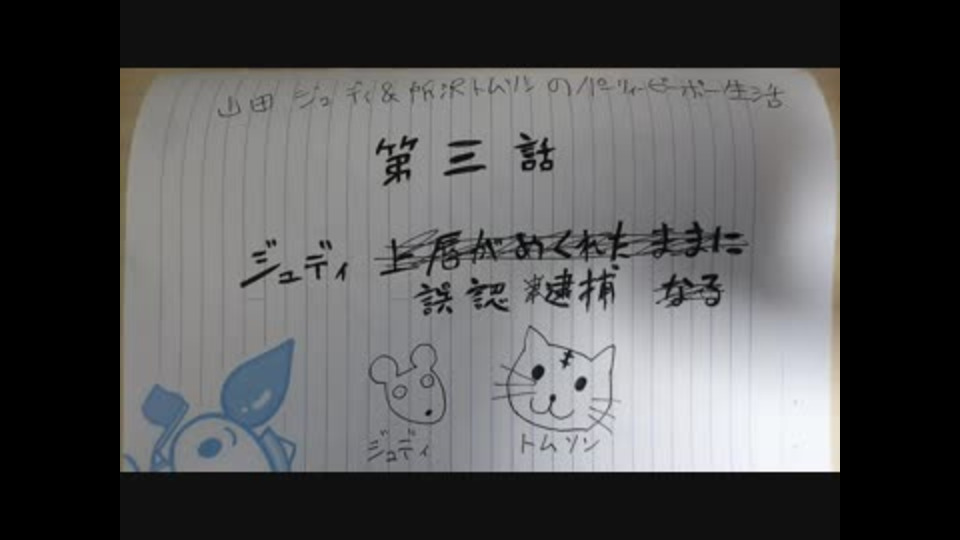 山田ジュディ&所沢トムソンのパーリーピーポー生活
第三話
ジュディ 上唇がめくれたままに
誤認逮捕 なる
ジュディ
トムソン